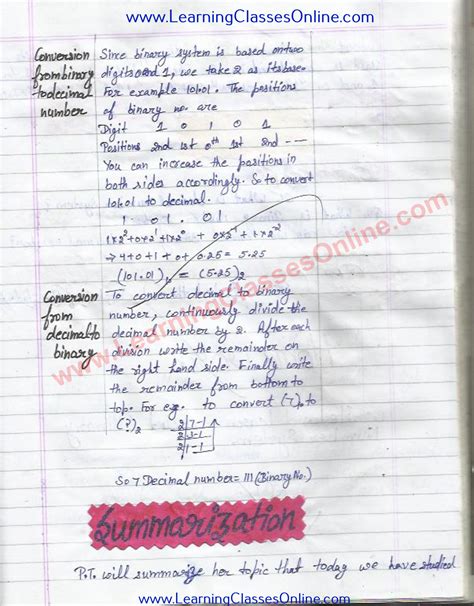 www.LearningClassesOnline.com
Conversion
from binary
to decimal
number
Since binary system is based on two
digits 0 and 1, we take 2 as its base.
For example 101.01. The positions
of binary no. are
Digit 1 0 1 0 1
Positions 2nd 1st 0th 1st 2nd ---
You can increase the positions in
both sides accordingly. So to convert
101.01 to decimal.
1 0 1 . 0 1
1×2² + 0×2¹ + 1×2⁰ + 0×2⁻¹ + 1×2⁻²
⇒ 4+0+1+0+0.25 = 5.25
(101.01)₂ = (5.25)₂
Conversion
from
decimal to
binary
To convert decimal to binary
number, continuously divide the
decimal number by 2. After each
division write the remainder on
the right hand side. Finally write
the remainder from bottom to
top. For eg. to convert (7)₁₀ to
(?)₂
2 7-1
2 3-1
2 1-1
So 7 Decimal number = 111 (Binary No.)
www.LearningClassesOnline.com
Summarization
P.T. will summarize her topic that today we have studied
www.LearningClassesOnline.com